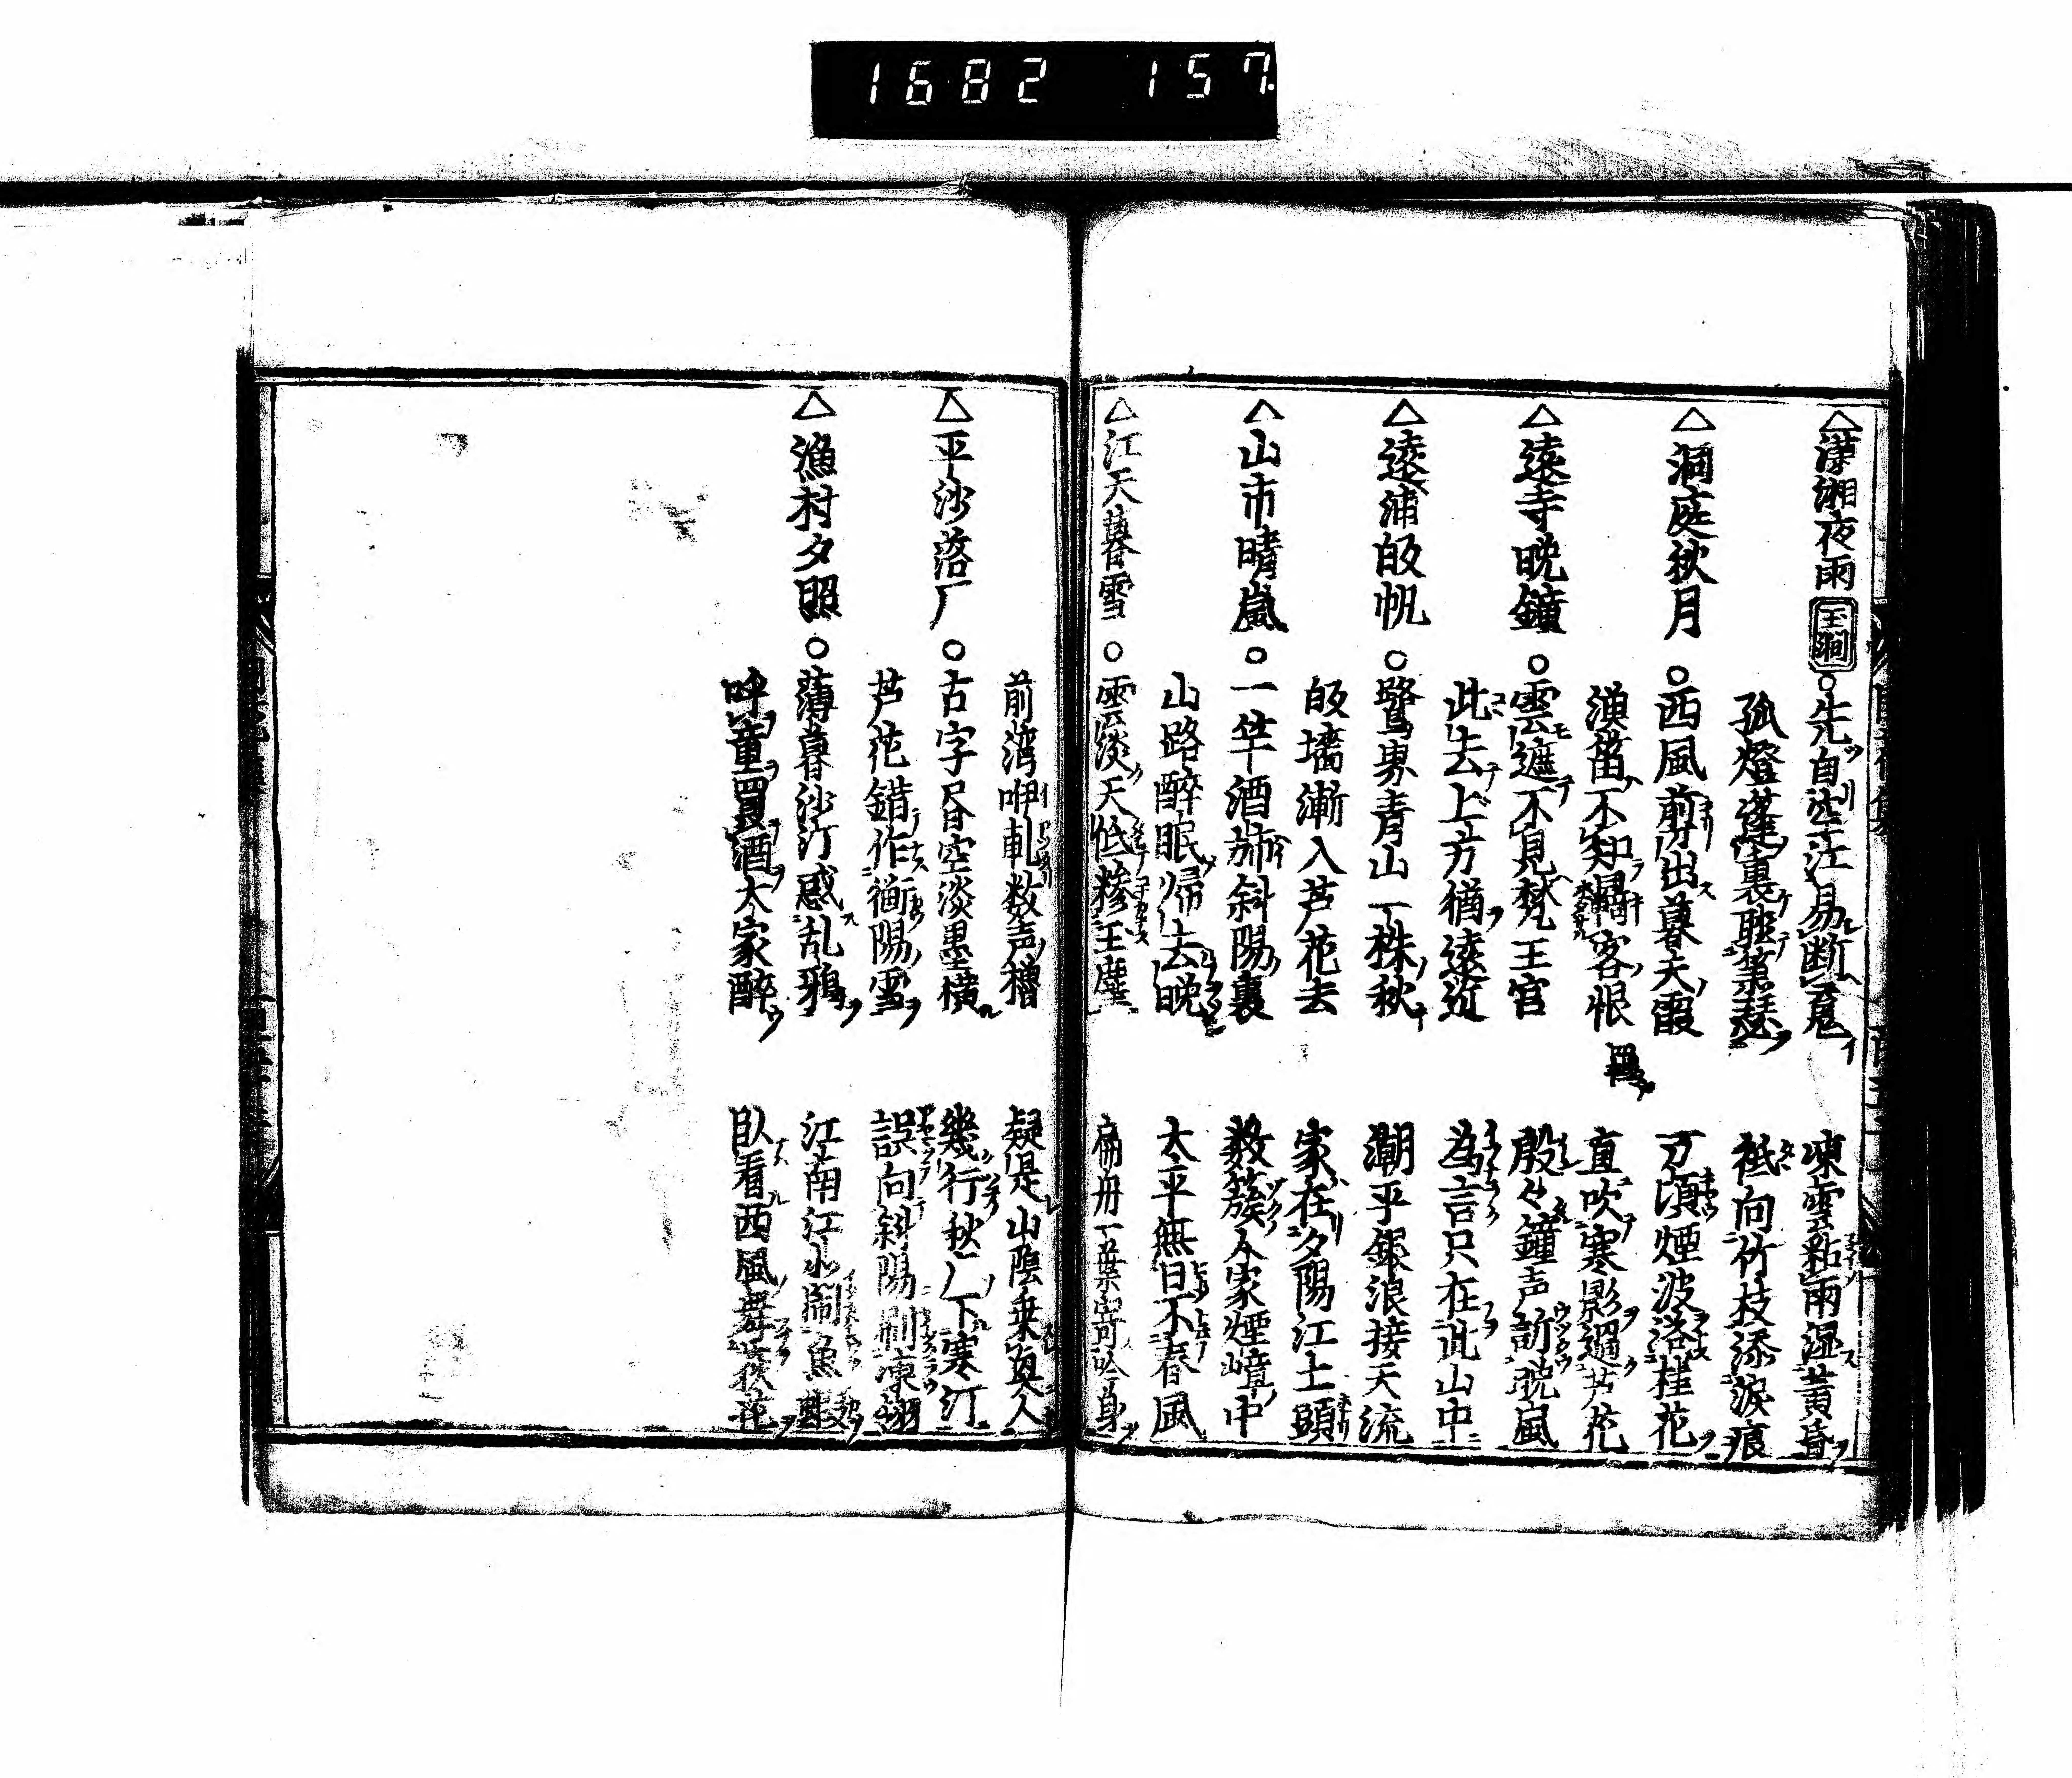 1682 157
△瀟湘夜雨 玉澗 ○先自空江易断魂 凍雲粘雨湿黄昏
孤燈篷裏聴蕭瑟 祗向竹枝添淚痕
△洞庭秋月 ○西風剪出暮天霞 万頃煙波浴桂花
漁笛不知羈客恨 直吹寒影過芦花
△遠寺晩鐘 ○雲遮不見梵王宮 殷々鐘声訴晩風
此去上方猶遠近 為言只在此山中
△遠浦皈帆 ○鷺界青山一抹秋 潮平銀浪接天流
皈檣漸入芦花去 家在夕陽江上頭
△山市晴嵐 ○一竿酒斾斜陽裏 数簇人家煙嶂中
山路醉眠帰去晩 太平無日不春風
△江天暮雪 ○雲淡天低糝玉塵 扁舟一葉寄吟身
前湾咿軋数声櫓 疑是山陰乗興人
△平沙落厂 ○古字昏空淡墨横 幾行秋厂下寒汀
芦花錯作衡陽雪 誤向斜陽刷凍翎
△漁村夕照 ○薄暮沙汀惑乱鴉 江南江水閙魚蝦
呼童買酒大家醉 臥看西風舞荻花